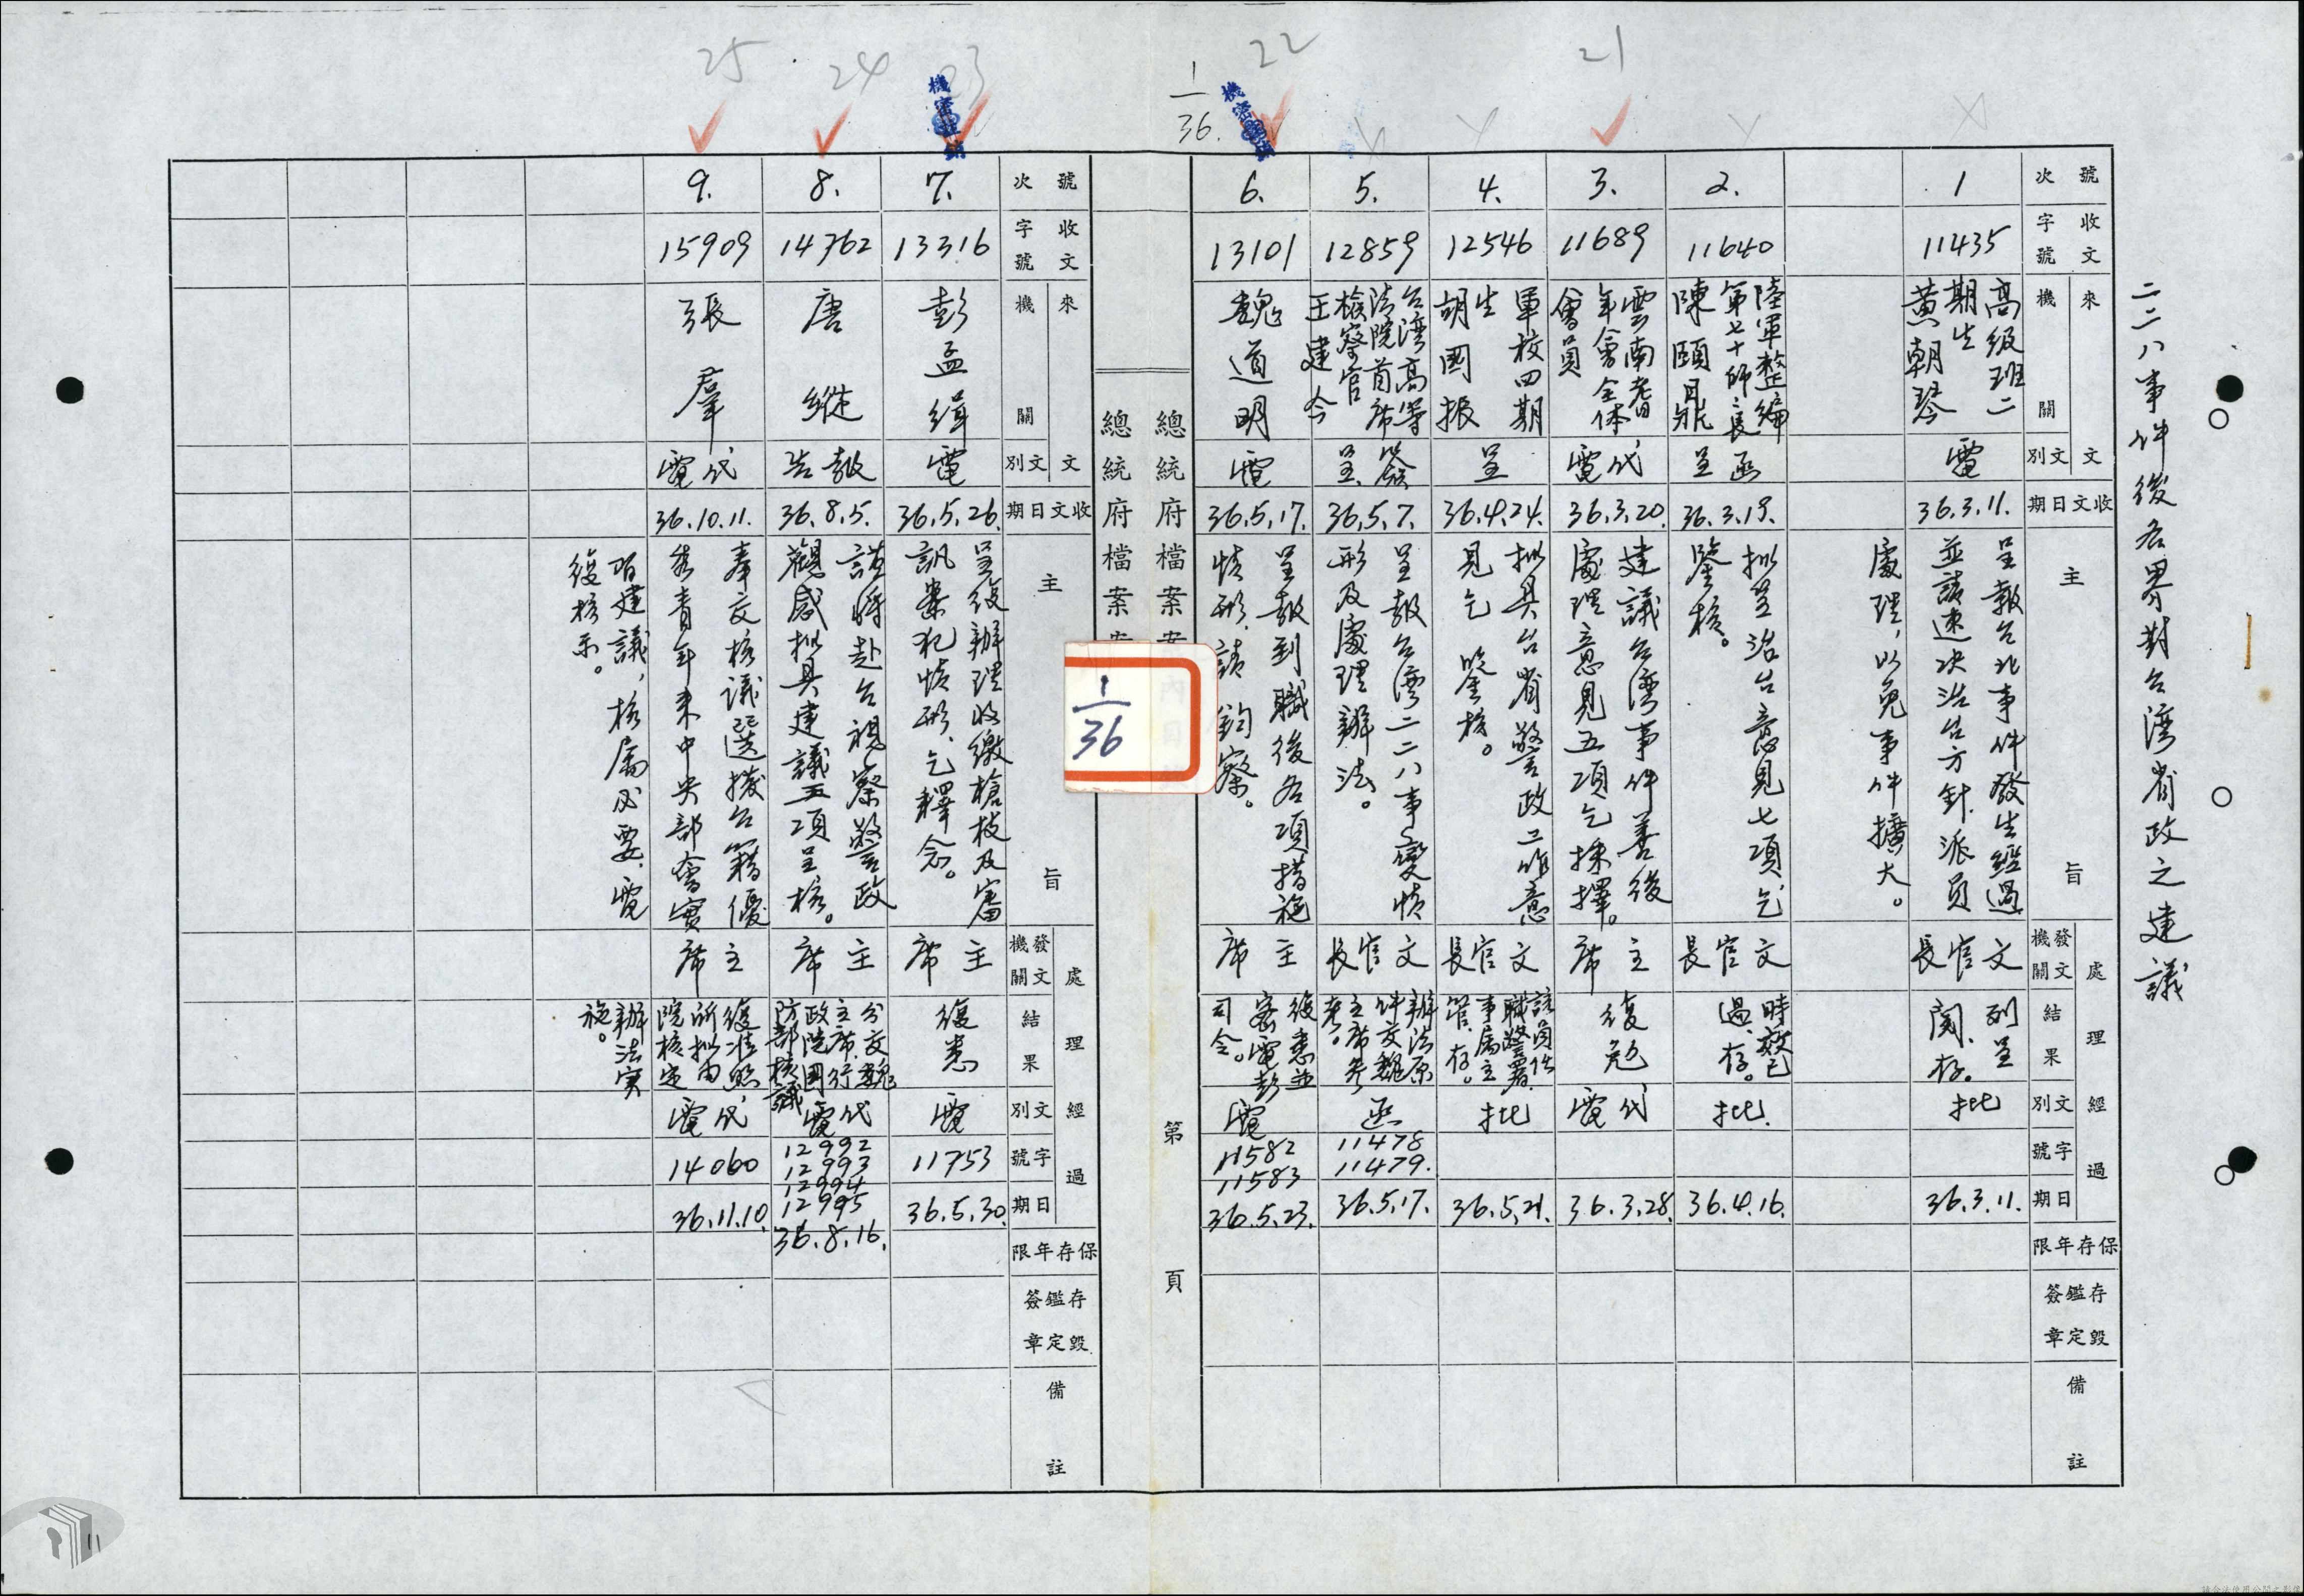 二二八事件後各界對台灣省政之建議
21
22
23
24
25
1
36.
機密註銷
機密註銷
號次
收文字號
來文機關
文別
收文日期
主旨
處理經過
發文機關
結果
文別
字號
日期
保存年限
存毀鑑定簽章
備註
1
11435
高級班二
期生
黃朝琴
電
36.3.11.
呈報台北事件發生經過
並請速決治台方針.派員
處理,以免事件擴大。
文官長
列呈
閱.存。
批
36.3.11.
2.
11640
陸軍整編
第七十師師長
陳頤鼎
函呈
36.3.19.
拟呈治台意見七項乞
鑒核。
文官長
時效已
過.存。
批.
36.4.16.
3.
11689
雲南耆
年會全体
會員
代電
36.3.20.
建議台灣事件善後
處理意見五項乞採擇。
主席
復勉
代電
36.3.28.
4.
12546
軍校四期
生
胡國振
呈
36.4.24.
拟具台省警政工作意
見乞 鑒核。
文官長
該員任
職警署.
事屬主
管.存。
批
36.5.21.
5.
12859
台灣高等
法院首席
檢察官
王建今
簽呈
36.5.7.
呈報台灣二二八事變情
形及處理辦法。
文官長
辦法原
件交魏
主席參
考。
函
11478
11479.
36.5.17.
6.
13101
魏道明
電
36.5.17.
呈報到職後各項措施
情形.請 鈞察。
主席
復悉並
密電彭
司令。
電
11582
11583
36.5.23.
總統府檔案
第 頁
總統府檔案
1
36
號次
收文字號
來文機關
文別
收文日期
主旨
處理經過
發文機關
結果
文別
字號
日期
保存年限
存毀鑑定簽章
備註
7.
13316
彭孟緝
電
36.5.26.
呈復辦理收繳槍枝及審
訊案犯情形.乞釋念。
主席
復悉
電
11753
36.5.30.
8.
14762
唐縱
報告
36.8.5.
謹將赴台視察警政
觀感拟具建議五項呈核。
主席
分交魏
主席.行
政院國
防部核議
代電
12992
12993
12994
12995
36.8.16.
9.
15909
張羣
代電
36.10.11.
奉交核議選拔台籍優
秀青年來中央部會實
習建議,核屬必要.電
復核示。
主席
復准照
所拟由
院核定
辦法實
施。
代電
14060
36.11.10.
11